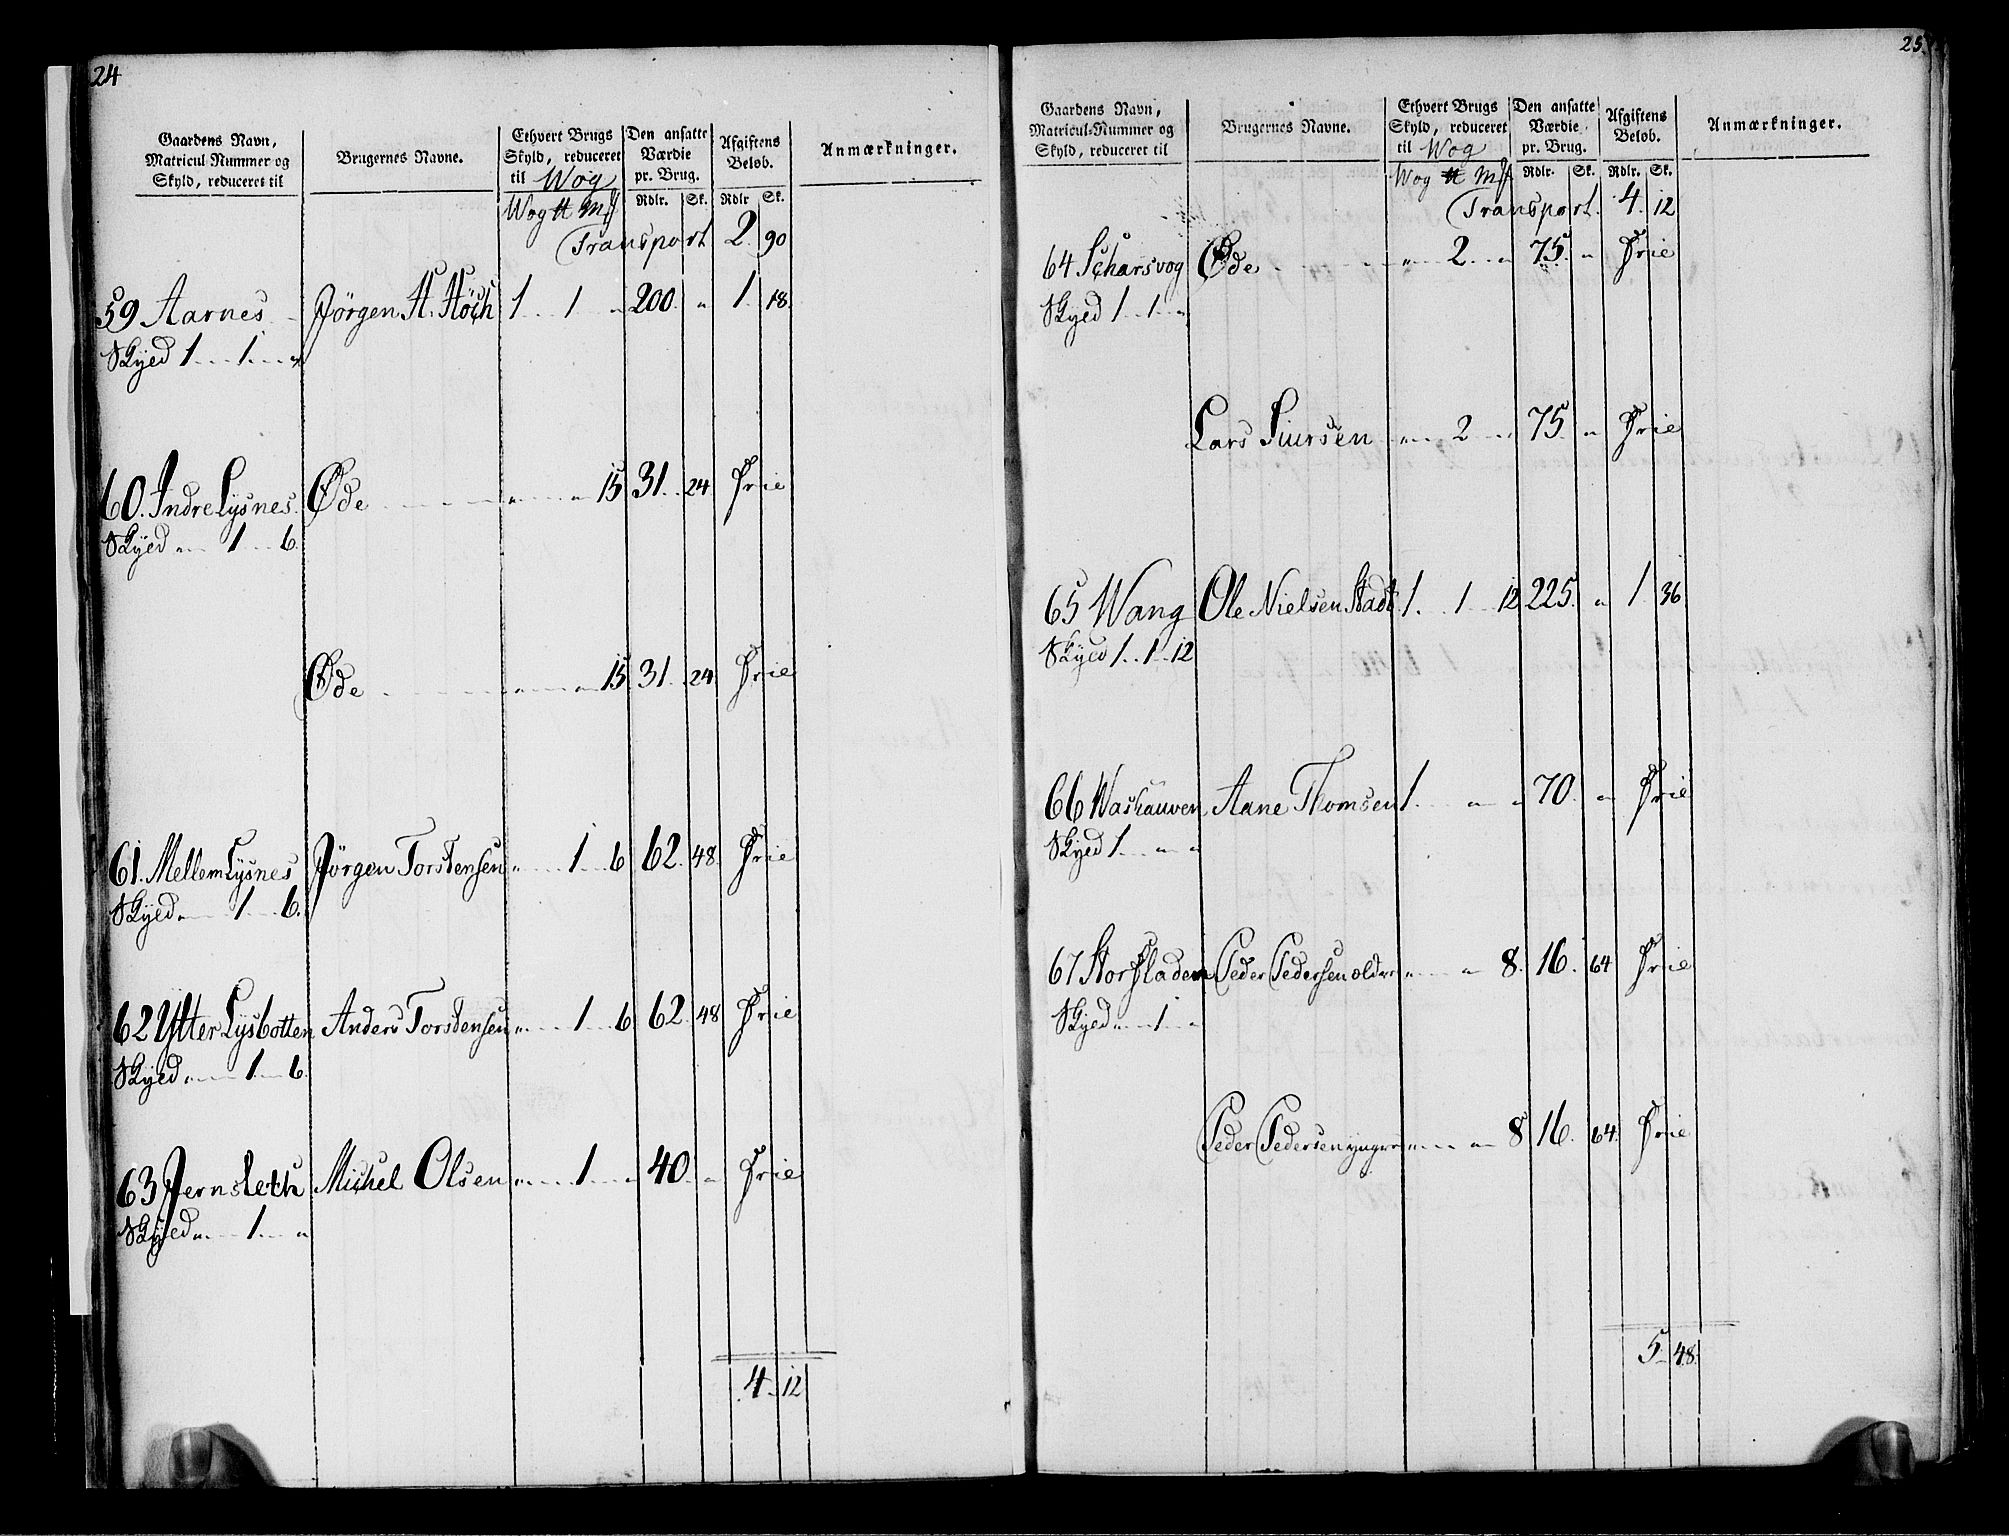 24
Gaardens Navn, Matricul-Nummer og Skyld, reduceret til | Brugernes Navne. | Ethvert Brugs Skyld, reduceret til Wog | Den ansatte Værdie pr. Brug. | Afgiftens Beløb. | Anmærkninger.
Wog ℔ Mk | Rdlr. | Sk. | Rdlr | Sk.
Transport 2. 90
59 Aarnes Jörgen H. Höch 1 1 " 200. " 1. 18.
Skyld 1 1 "
60. Indre Lysnes. Øde " " 15 31. 24 Frie
Skyld " 1 6.
Øde " " 15 31. 24 Frie
61. Mellem Lysnes Jörgen Torstensen " 1 6 62. 48. Frie
Skyld " 1 6.
62 Ytter Lysbotten Anders Torstensen " 1 6 62. 48 Frie
Skyld " 1 6.
63 Jernsleth Michel Olsen " 1 " 40. " Frie
Skyld " 1 "
4. 12
25.
Gaardens Navn, Matricul-Nummer og Skyld, reduceret til | Brugernes Navne. | Ethvert Brugs Skyld, reduceret til Wog | Den ansatte Værdie pr. Brug. | Afgiftens Beløb. | Anmærkninger.
Wog ℔ Mk | Rdlr. | Sk. | Rdlr. | Sk.
Transport. 4. 12
64 Scharsvog Øde " 2 " 75. " Frie
Skyld 1 1 "
Lars Siursen " 2 " 75. " Frie
65 Wang Ole Nielsen Stadt 1. 1 12 225. " 1. 36
Skyld 1 1 12
66 Washauven Aane Thomsen 1 " " 70. " Frie
Skyld 1 " "
67 Storsladen Peder Pedersen ældre " " 8. 16. 64 Frie
Skyld " 1 "
Peder Pedersen yngre " " 8 16. 64. Frie
5. 48.